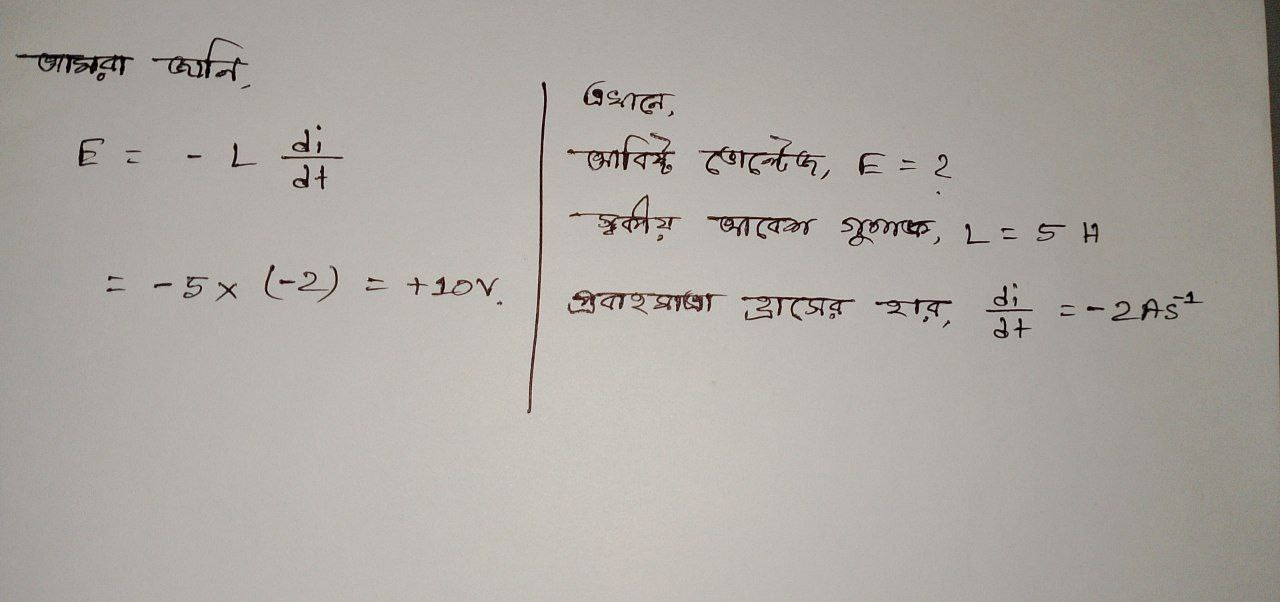 আমরা জানি,
E = - L di/dt
= - 5 × (-2) = +10V.
এখানে,
আবিষ্ট ভোল্টেজ, E = ?
স্বকীয় আবেশ গুণাঙ্ক, L = 5 H
প্রবাহমাত্রা হ্রাসের হার, di/dt = - 2 As⁻¹